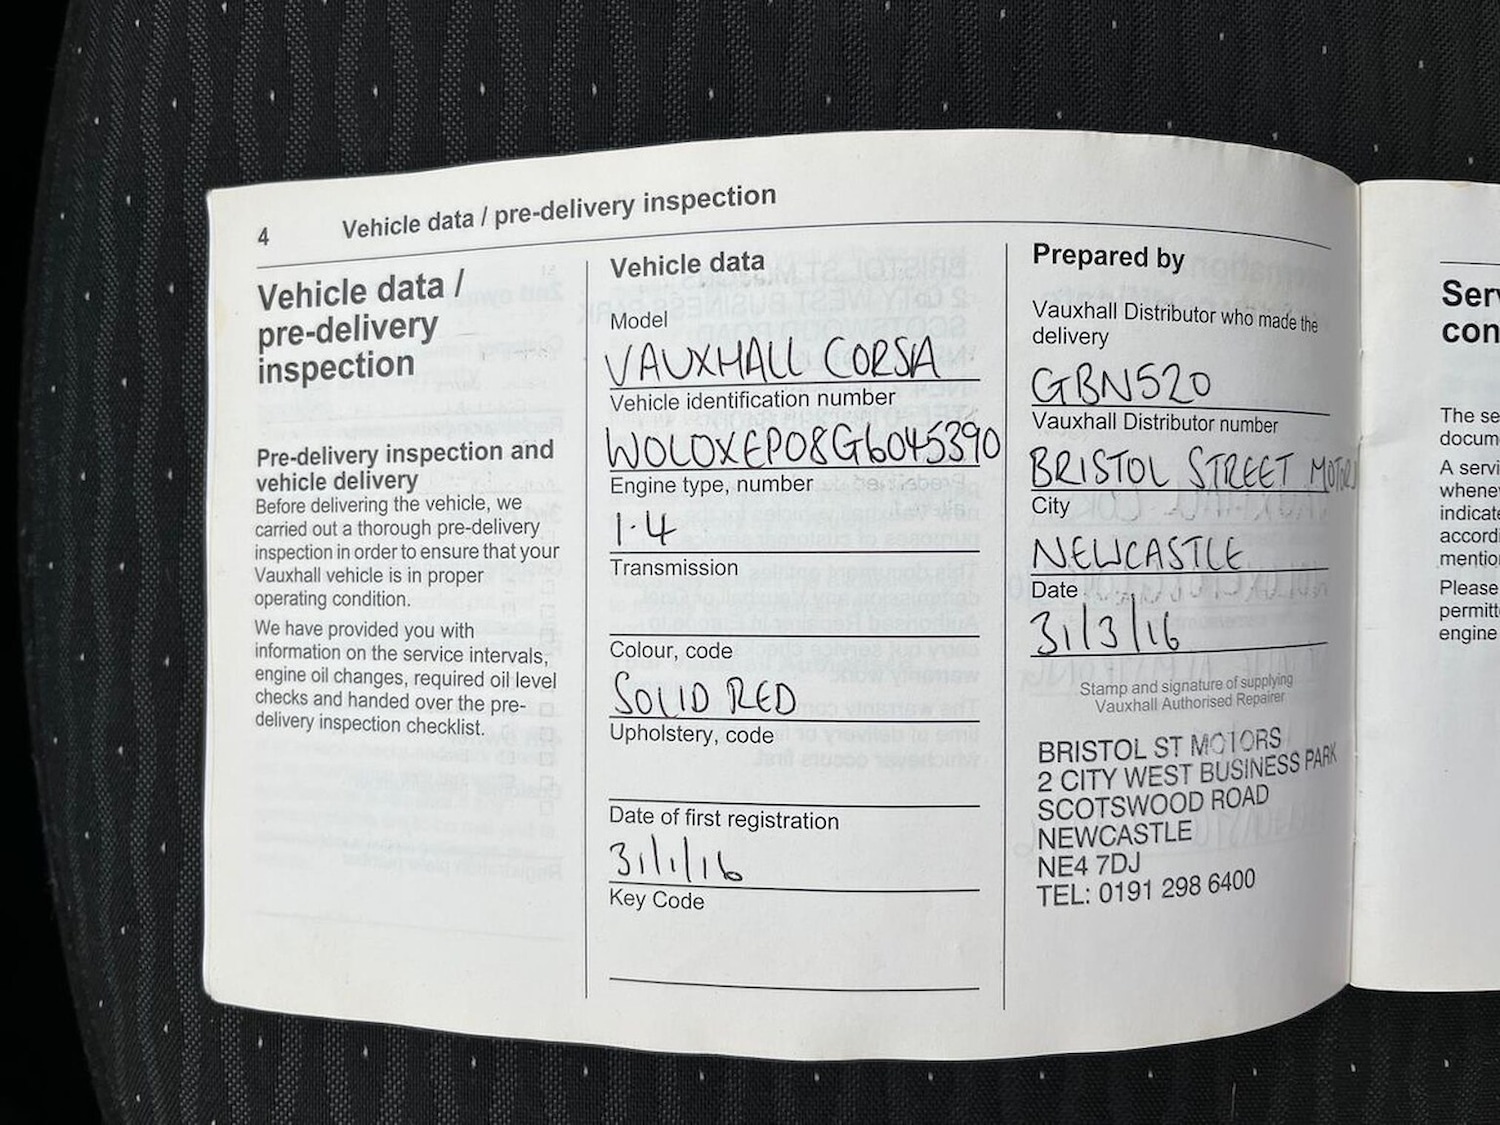 4 Vehicle data / pre-delivery inspection
Vehicle data /
pre-delivery
inspection
Pre-delivery inspection and
vehicle delivery
Before delivering the vehicle, we
carried out a thorough pre-delivery
inspection in order to ensure that your
Vauxhall vehicle is in proper
operating condition.
We have provided you with
information on the service intervals,
engine oil changes, required oil level
checks and handed over the pre-
delivery inspection checklist.
Vehicle data
Model
VAUXHALL CORSA
Vehicle identification number
WOLOXEPO8G6045390
Engine type, number
1.4
Transmission
Colour, code
SOLID RED
Upholstery, code
Date of first registration
31/1/16
Key Code
Prepared by
Vauxhall Distributor who made the
delivery
GBN520
Vauxhall Distributor number
BRISTOL STREET MOTORS
City
NEWCASTLE
Date
31/3/16
Stamp and signature of supplying
Vauxhall Authorised Repairer
BRISTOL ST MOTORS
2 CITY WEST BUSINESS PARK
SCOTSWOOD ROAD
NEWCASTLE
NE4 7DJ
TEL: 0191 298 6400
Ser
con
The se
docum
A servi
whene
indicate
accordi
mention
Please
permitt
engine